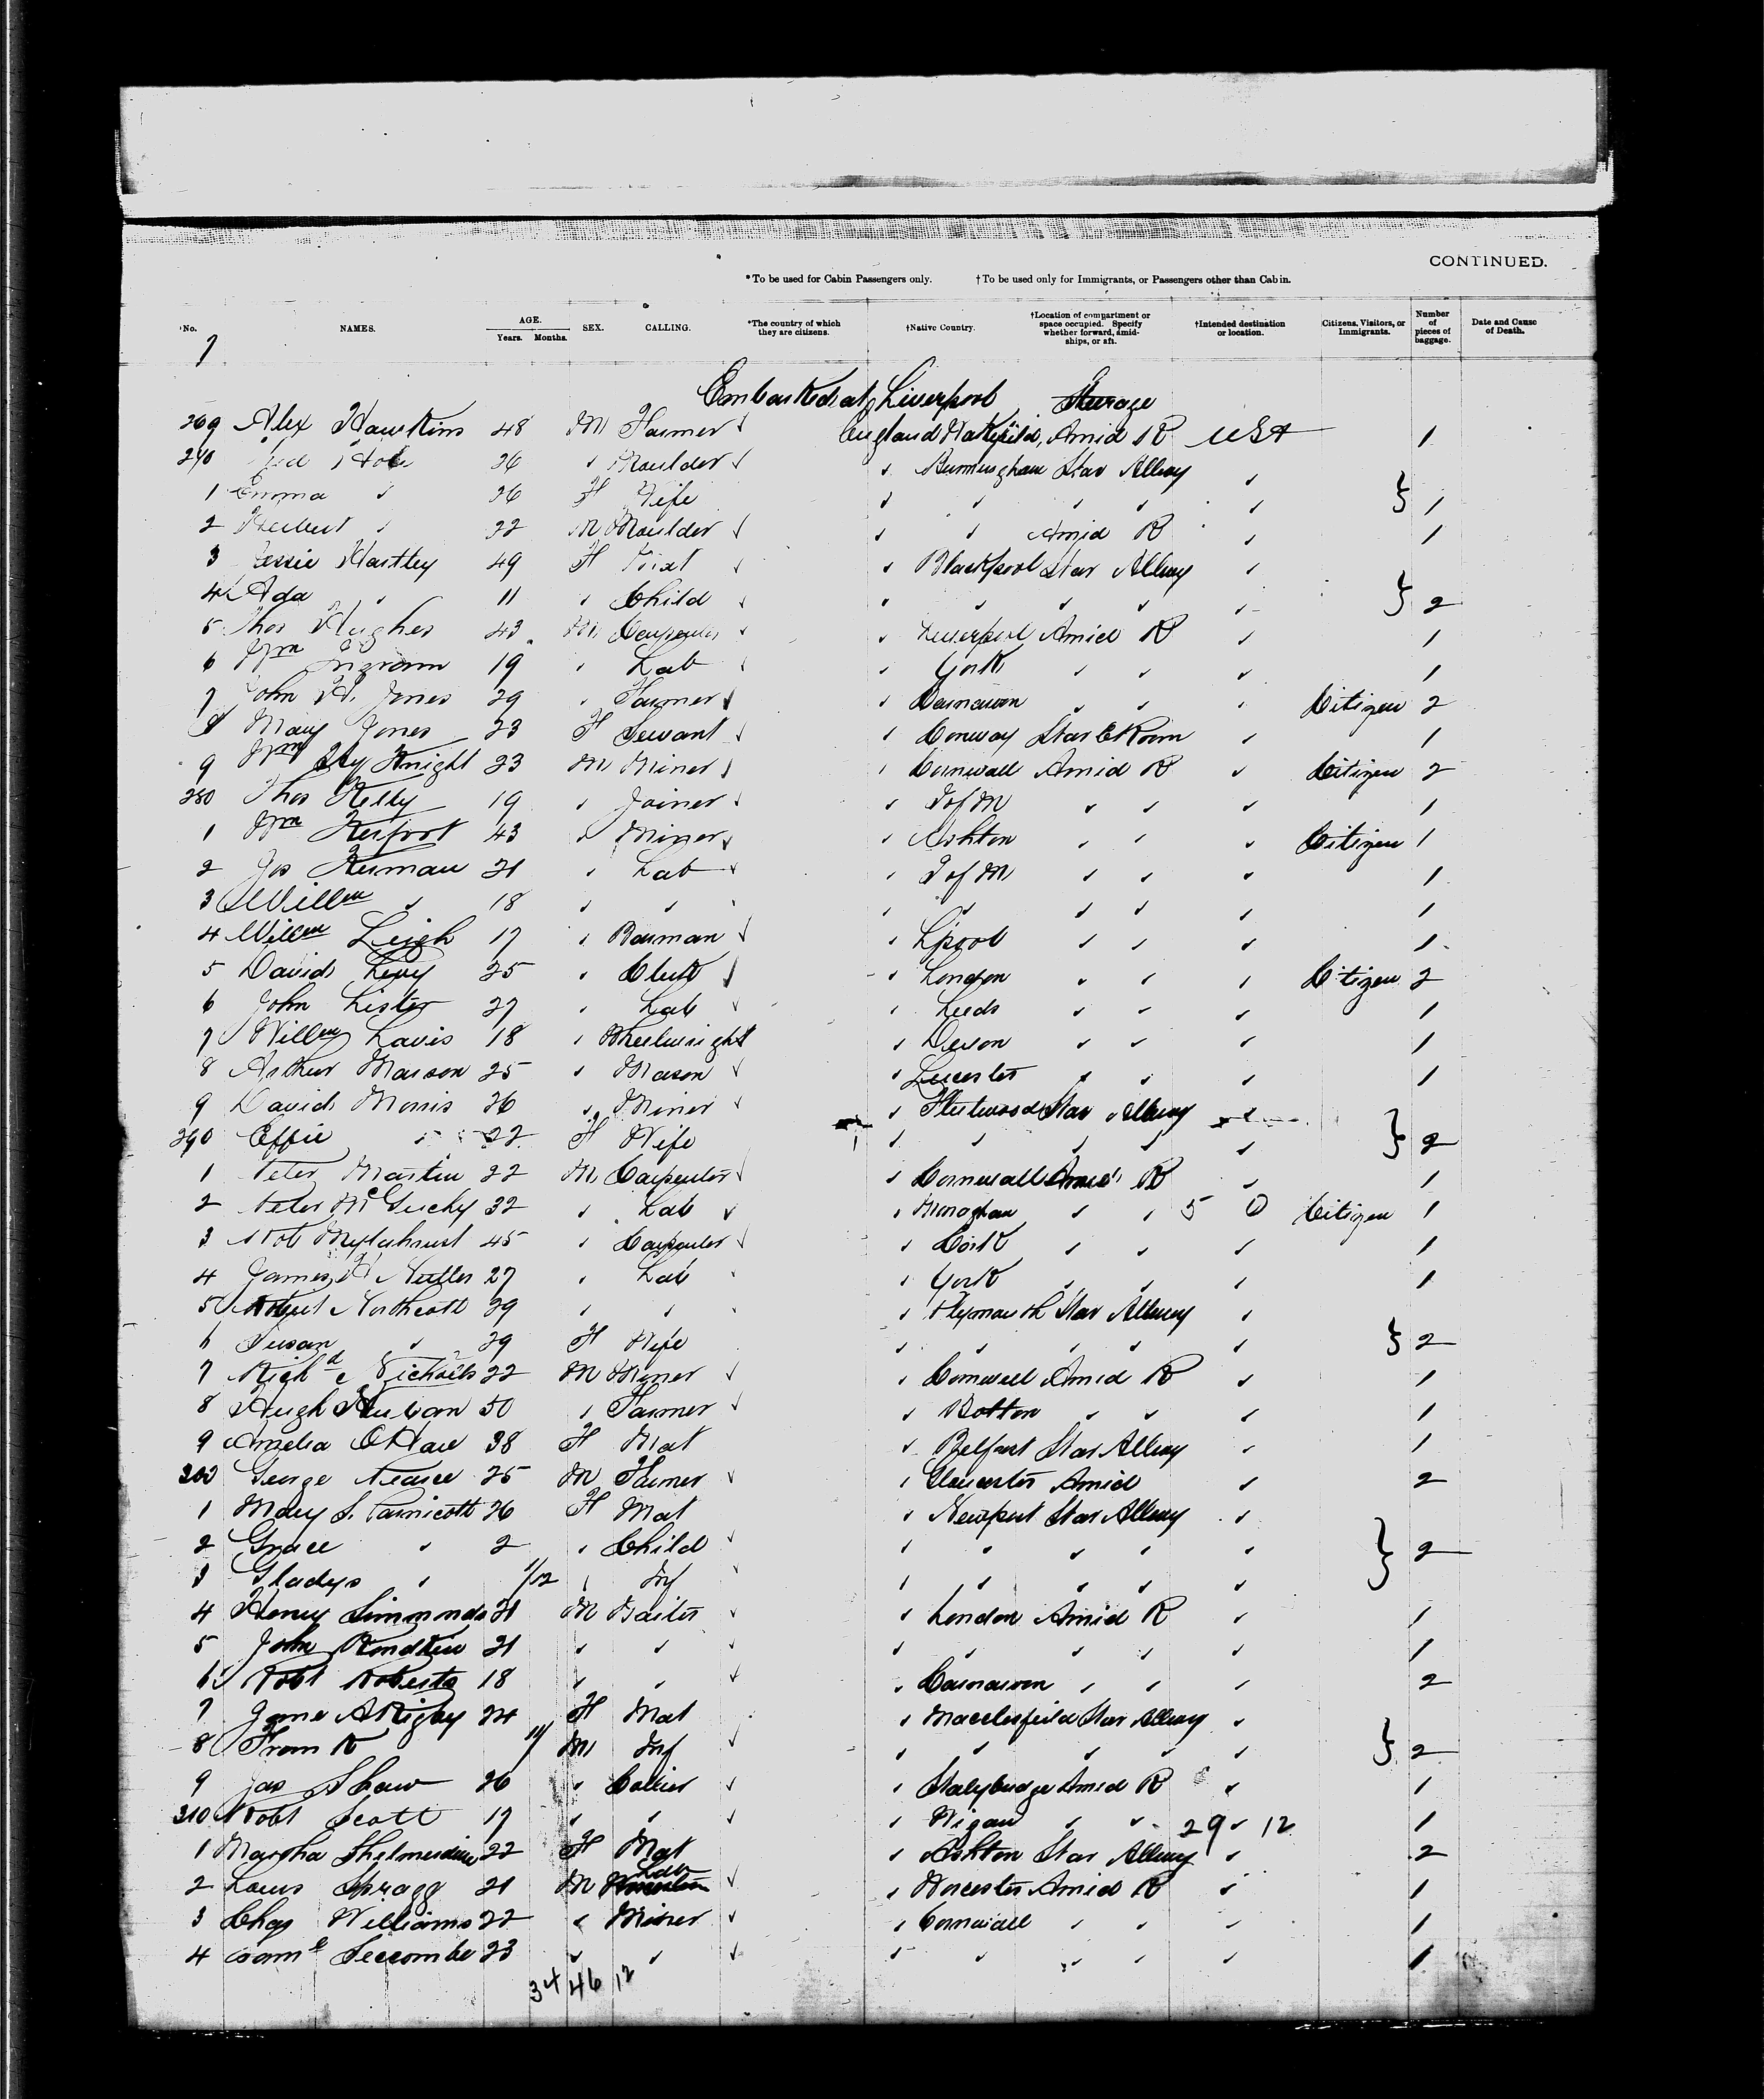 CONTINUED.
*To be used for Cabin Passengers only. †To be used only for Immigrants, or Passengers other than Cabin.
No. NAMES. AGE. Years. Months. SEX. CALLING. *The country of which they are citizens. †Native Country. †Location of compartment or space occupied. Specify whether forward, amidships, or aft. †Intended destination or location. Citizens, Visitors, or Immigrants. Number of pieces of baggage. Date and Cause of Death.
7
Embarked at Liverpool Steerage
269 Alex Hawkins 48 M Farmer England Amid R USA 1
270 26 " Moulder " Birmingham Star Allway "
1 Emma " 26 F Wife " " " " " } 1
2 Herbert " 22 M Moulder " " Amid R " 1
3 Jessie Hartley 49 F " Blackpool Star Allway "
4 Ada " 11 " Child " " " " " } 2
5 Thos Hughes 43 M Carpenter " Liverpool Amid R " 1
6 Wm Ingram 19 " Lab " York " " " 1
7 John H. Jones 29 " Farmer " Carnarvon " " " Citizen 2
8 Mary Jones 23 F Servant " Conway Star Room " 1
9 Wm Hy Knight 23 M Miner " Cornwall Amid R " Citizen 2
280 Thos Kelly 19 " Joiner " I of M " " " 1
1 Wm Kerfoot 43 " Miner " Ashton " " " Citizen 1
2 Jos Kerman 21 " Lab " I of M " " " 1
3 Willm " 18 " " " " " " " 1
4 Willm Leigh 17 " Barman " Lpool " " " 1
5 David Levy 25 " Clerk " London " " " Citizen 2
6 John Lister 27 " Lab " Leeds " " " 1
7 Willm Lavis 18 " Wheelwright " Devon " " " 1
8 Arthur Marson 25 " Mason " Leicester " " " 1
9 David Morris 26 " Miner " Fleetwood Star Allway "
290 Effie " 22 F Wife " " " " " } 2
1 Peter Martin 22 M Carpenter " Cornwall Amid R " 1
2 Peter 32 " Lab " Monaghan " " 5 0 Citizen 1
3 Rob 45 " Carpenter " Cork " " " 1
4 James H 27 " Lab " York " " " 1
5 Northcott 29 " " " Plymouth Star Allway "
6 Susan " 29 F Wife " " " " " } 2
7 Richd 22 M Miner " Cornwall Amid R " 1
8 Hugh 50 " Farmer " Bolton " " " 1
9 Amelia O'Hare 38 F Mat " Belfast Star Allway " 1
300 George Pearce 25 M Farmer " Gloucester Amid " 2
1 Mary S. Parnicott 26 F Mat " Newport Star Allway "
2 Grace " 2 " Child " " " " " } 2
3 Gladys " 1/12 " Inf " " " " "
4 Henry Simmonds 21 M " London Amid R " 1
5 John 21 " " " " " " " 1
6 Robt Roberts 18 " " " Carnarvon " " " 2
7 Jane A Rigby 24 F Mat " Macclesfield Star Allway "
8 11/ M Inf " " " " " } 2
9 Jas Shaw 26 " Collier " Stalybridge Amid R " 1
310 Robt Scott 17 " " " Wigan " " 29 " 12 1
1 Martha Shelmerdine 22 F Mat " Ashton Star Allway " 2
2 Louis Spragg 21 M Lab " Worcester Amid R " 1
3 Chas Williams 22 " Miner " Cornwall " " " 1
4 Saml Seccombe 23 " " " " " " " 1
34 46 12